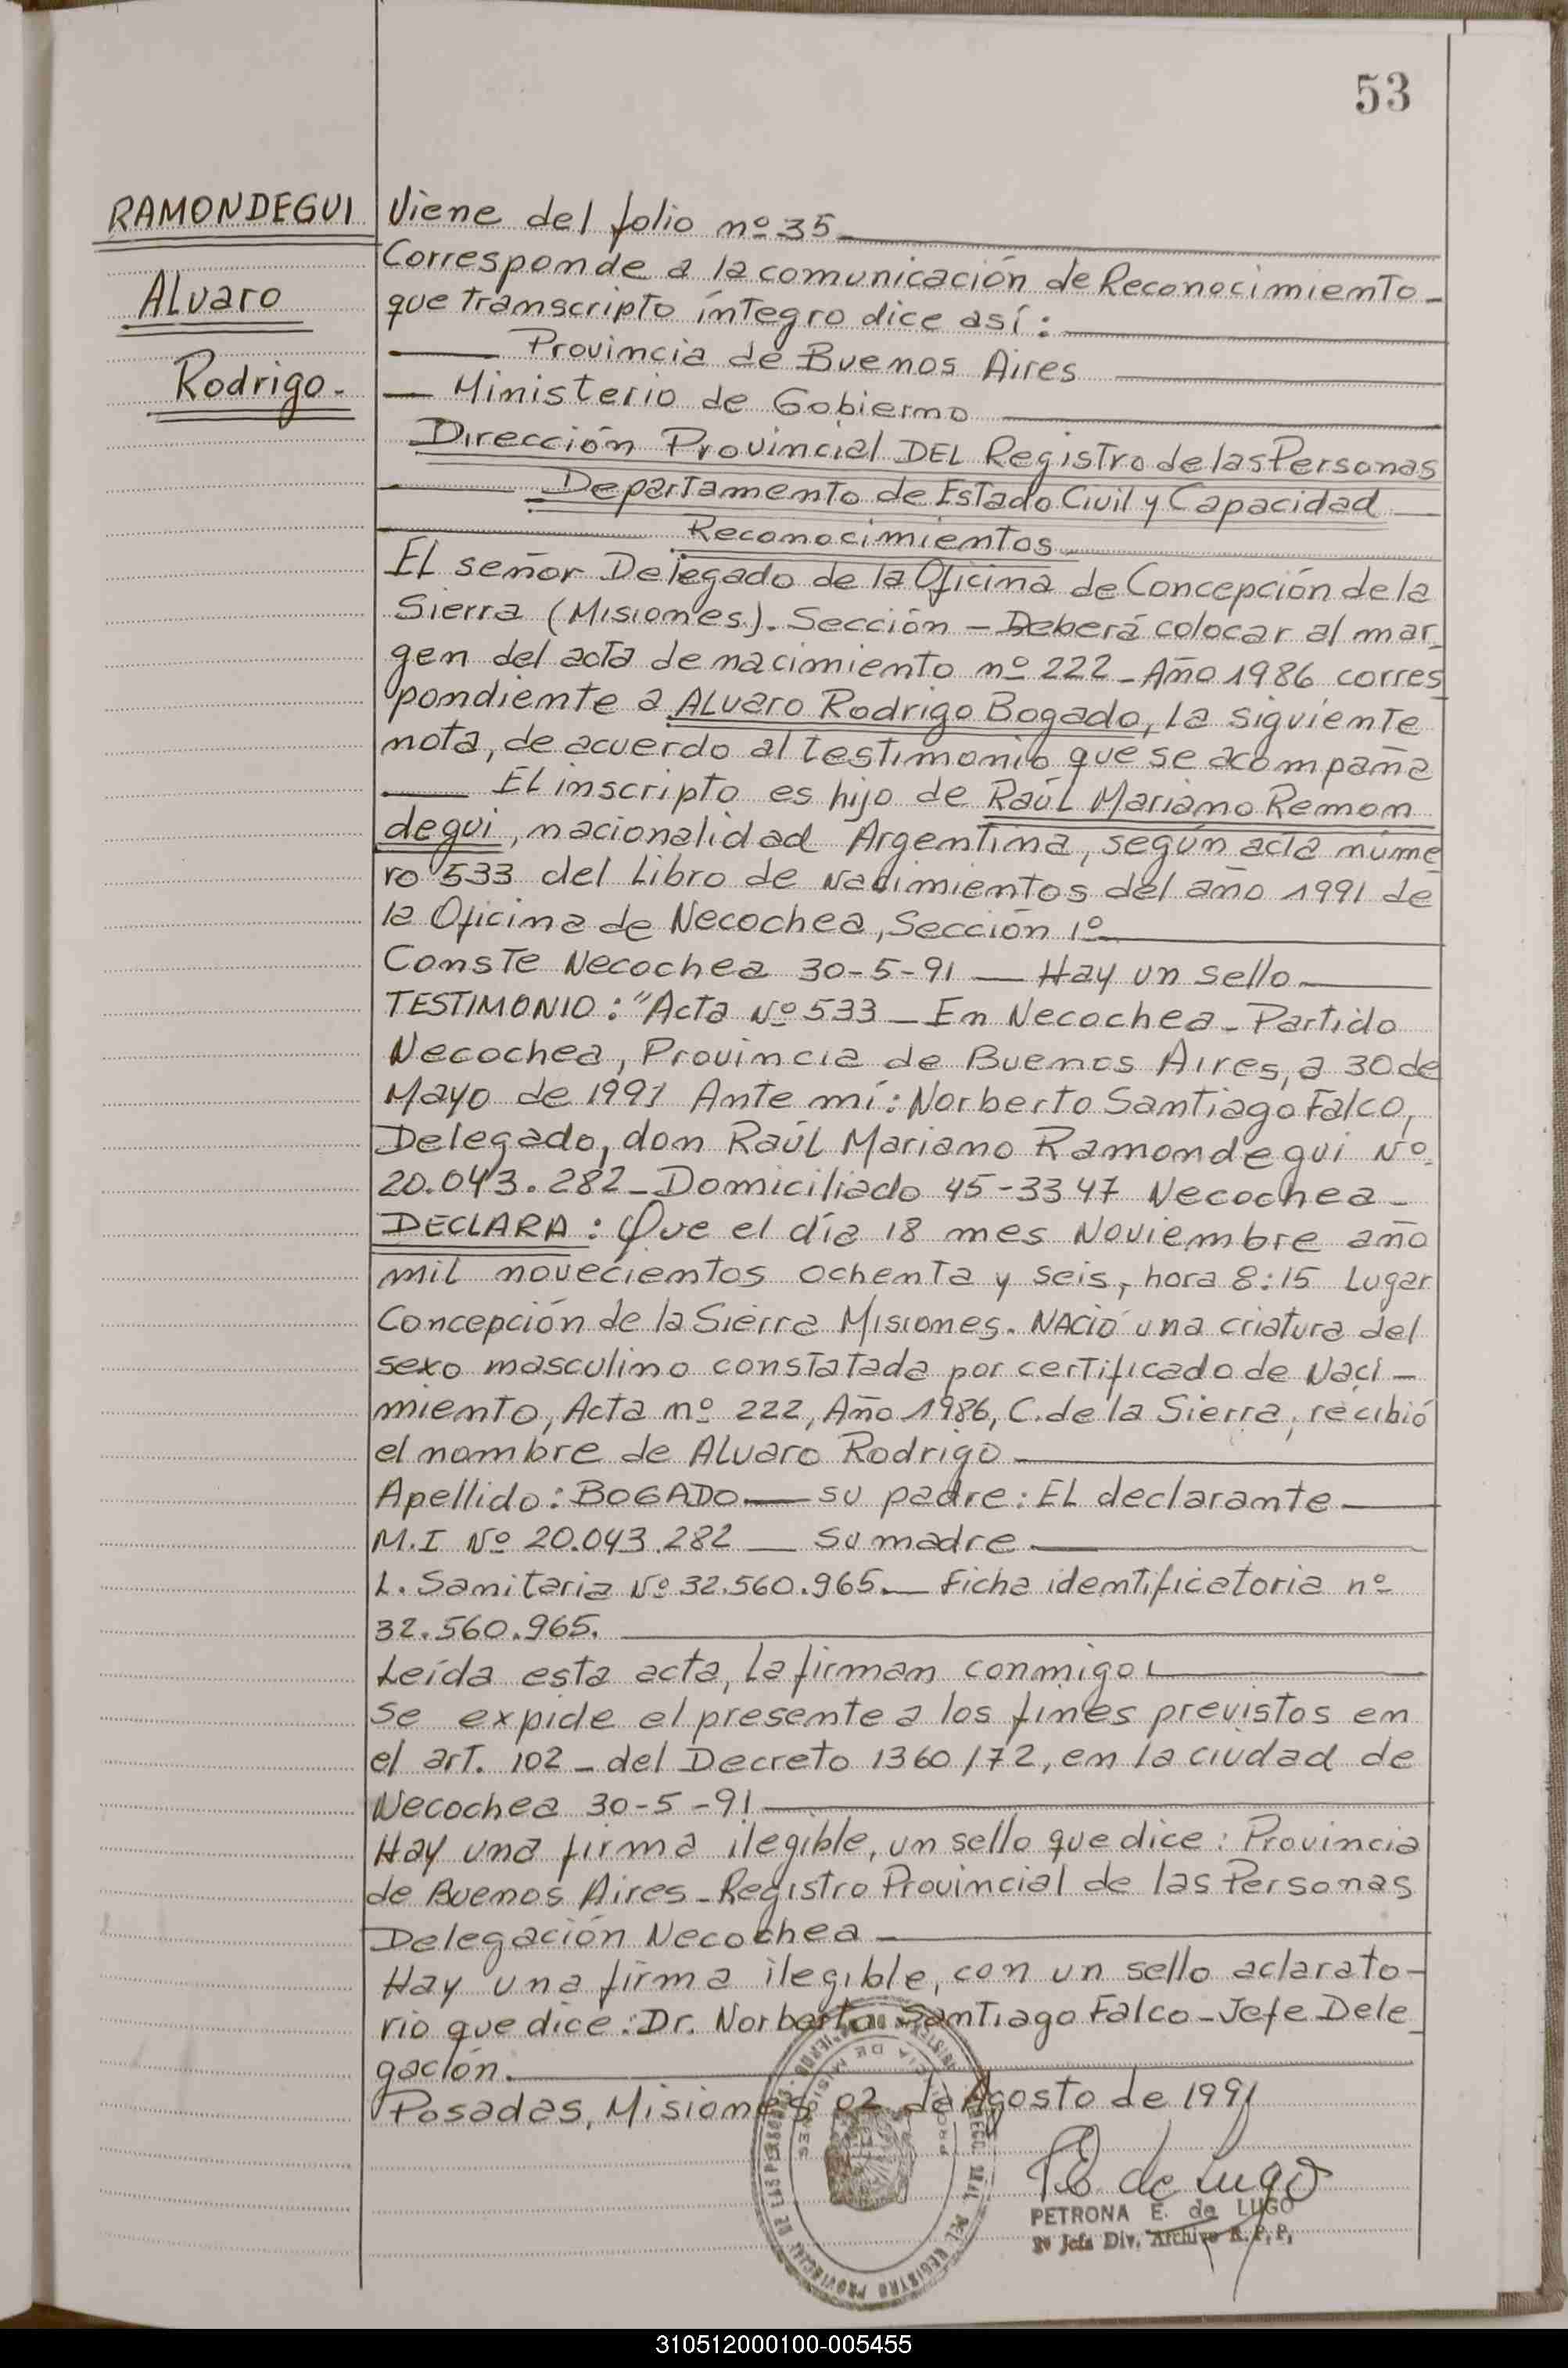 53
RAMONDEGUI
Alvaro
Rodrigo.-
Viene del folio nº 35
Corresponde a la comunicación de Reconocimiento
que transcripto íntegro dice así:
Provincia de Buenos Aires
Ministerio de Gobierno
Dirección Provincial DEL Registro de las Personas
Departamento de Estado Civil y Capacidad
Reconocimientos
El señor Delegado de la Oficina de Concepción de la
Sierra (Misiones). Sección - Deberá colocar al mar_
gen del acta de nacimiento nº 222 - Año 1986 corres_
pondiente a Alvaro Rodrigo Bogado, la siguiente
nota, de acuerdo al testimonio que se acompaña
El inscripto es hijo de Raúl Mariano Remon
degui, nacionalidad Argentina, según acta núme
ro 533 del Libro de Nacimientos del año 1991 de
la Oficina de Necochea, Sección 1º
Conste Necochea 30-5-91 — Hay un sello
TESTIMONIO: "Acta Nº 533 - En Necochea - Partido
Necochea, Provincia de Buenos Aires, a 30 de
Mayo de 1991 Ante mí: Norberto Santiago Falco,
Delegado, don Raúl Mariano Ramondegui Nº
20.043.282 - Domiciliado 45-3347 Necochea -
DECLARA: Que el día 18 mes Noviembre año
mil novecientos ochenta y seis, hora 8:15 Lugar
Concepción de la Sierra Misiones. NACIÓ una criatura del
sexo masculino constatada por certificado de Naci-
miento, Acta nº 222, Año 1986, C. de la Sierra, recibió
el nombre de Alvaro Rodrigo
Apellido: BOGADO — su padre: EL declarante
M.I Nº 20.043.282 — Su madre
L. Sanitaria Nº 32.560.965. — Ficha identificatoria nº
32.560.965.
Leída esta acta, la firman conmigo
Se expide el presente a los fines previstos en
el art. 102 - del Decreto 1360/72, en la ciudad de
Necochea 30-5-91
Hay una firma ilegible, un sello que dice: Provincia
de Buenos Aires - Registro Provincial de las Personas
Delegación Necochea
Hay una firma ilegible, con un sello aclarato-
rio que dice: Dr. Norberto Santiago Falco - Jefe Dele_
gación.
Posadas, Misiones 02 de Agosto de 1991
P.E. de Lugo
PETRONA E. de LUGO
Jefa Div. Archivo R. P. P.
310512000100-005455